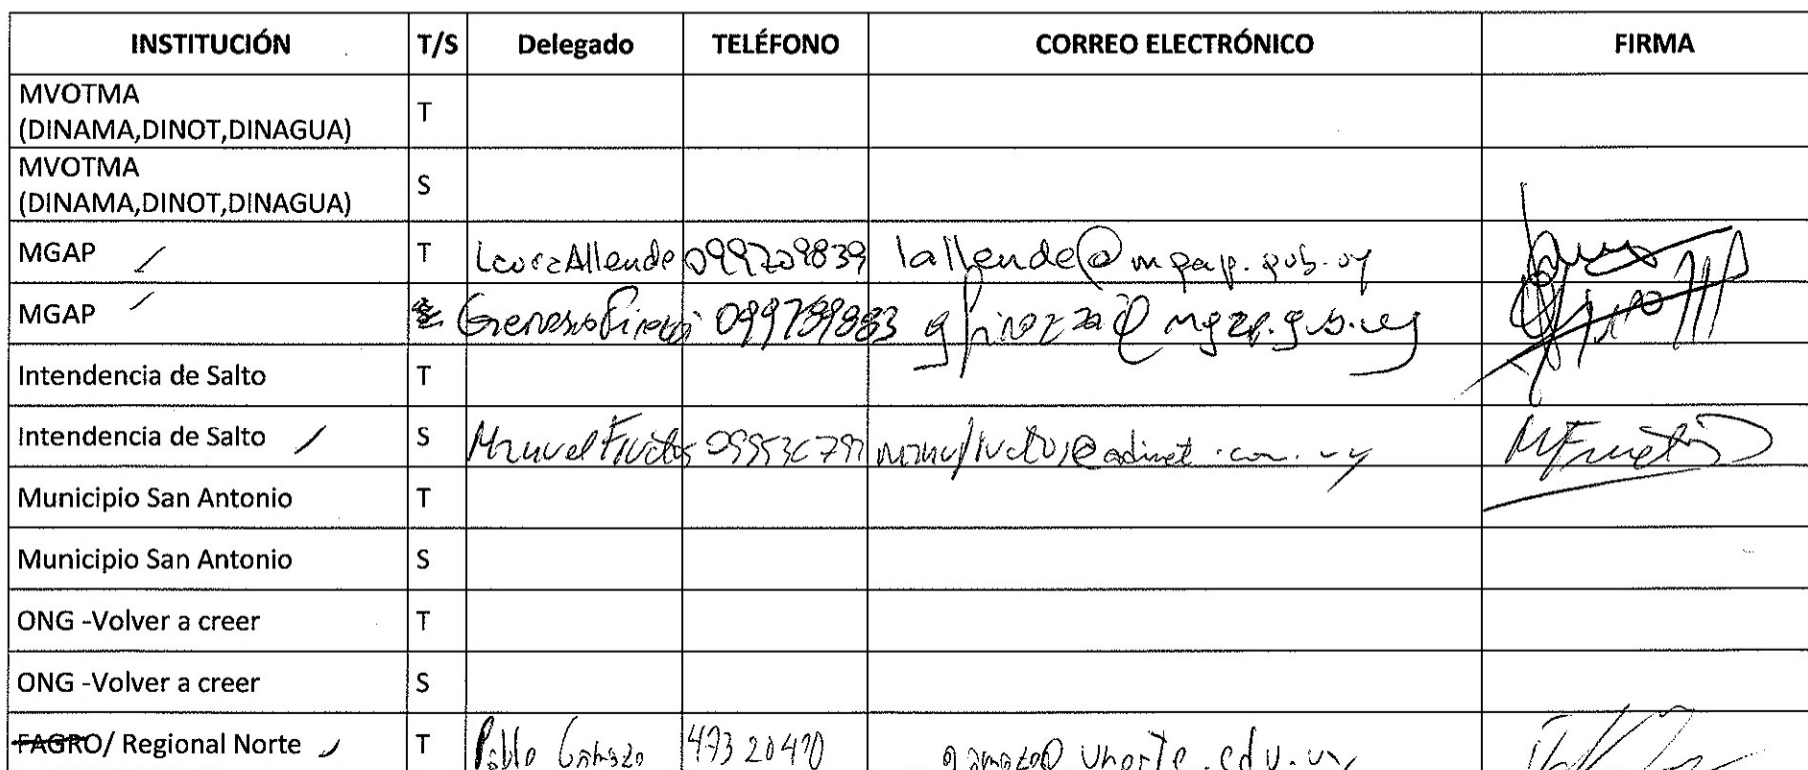 INSTITUCIÓN T/S Delegado TELÉFONO CORREO ELECTRÓNICO FIRMA
MVOTMA
(DINAMA,DINOT,DINAGUA) T
MVOTMA
(DINAMA,DINOT,DINAGUA) S
MGAP T Laura Allende 099209839 lallende@mgap.gub.uy
MGAP 099789883 @mgap.gub.uy
Intendencia de Salto T
Intendencia de Salto S Manuel Fructos @adinet.com.uy
Municipio San Antonio T
Municipio San Antonio S
ONG -Volver a creer T
ONG -Volver a creer S
FAGRO/ Regional Norte T Pablo 47320410 @unorte.edu.uy